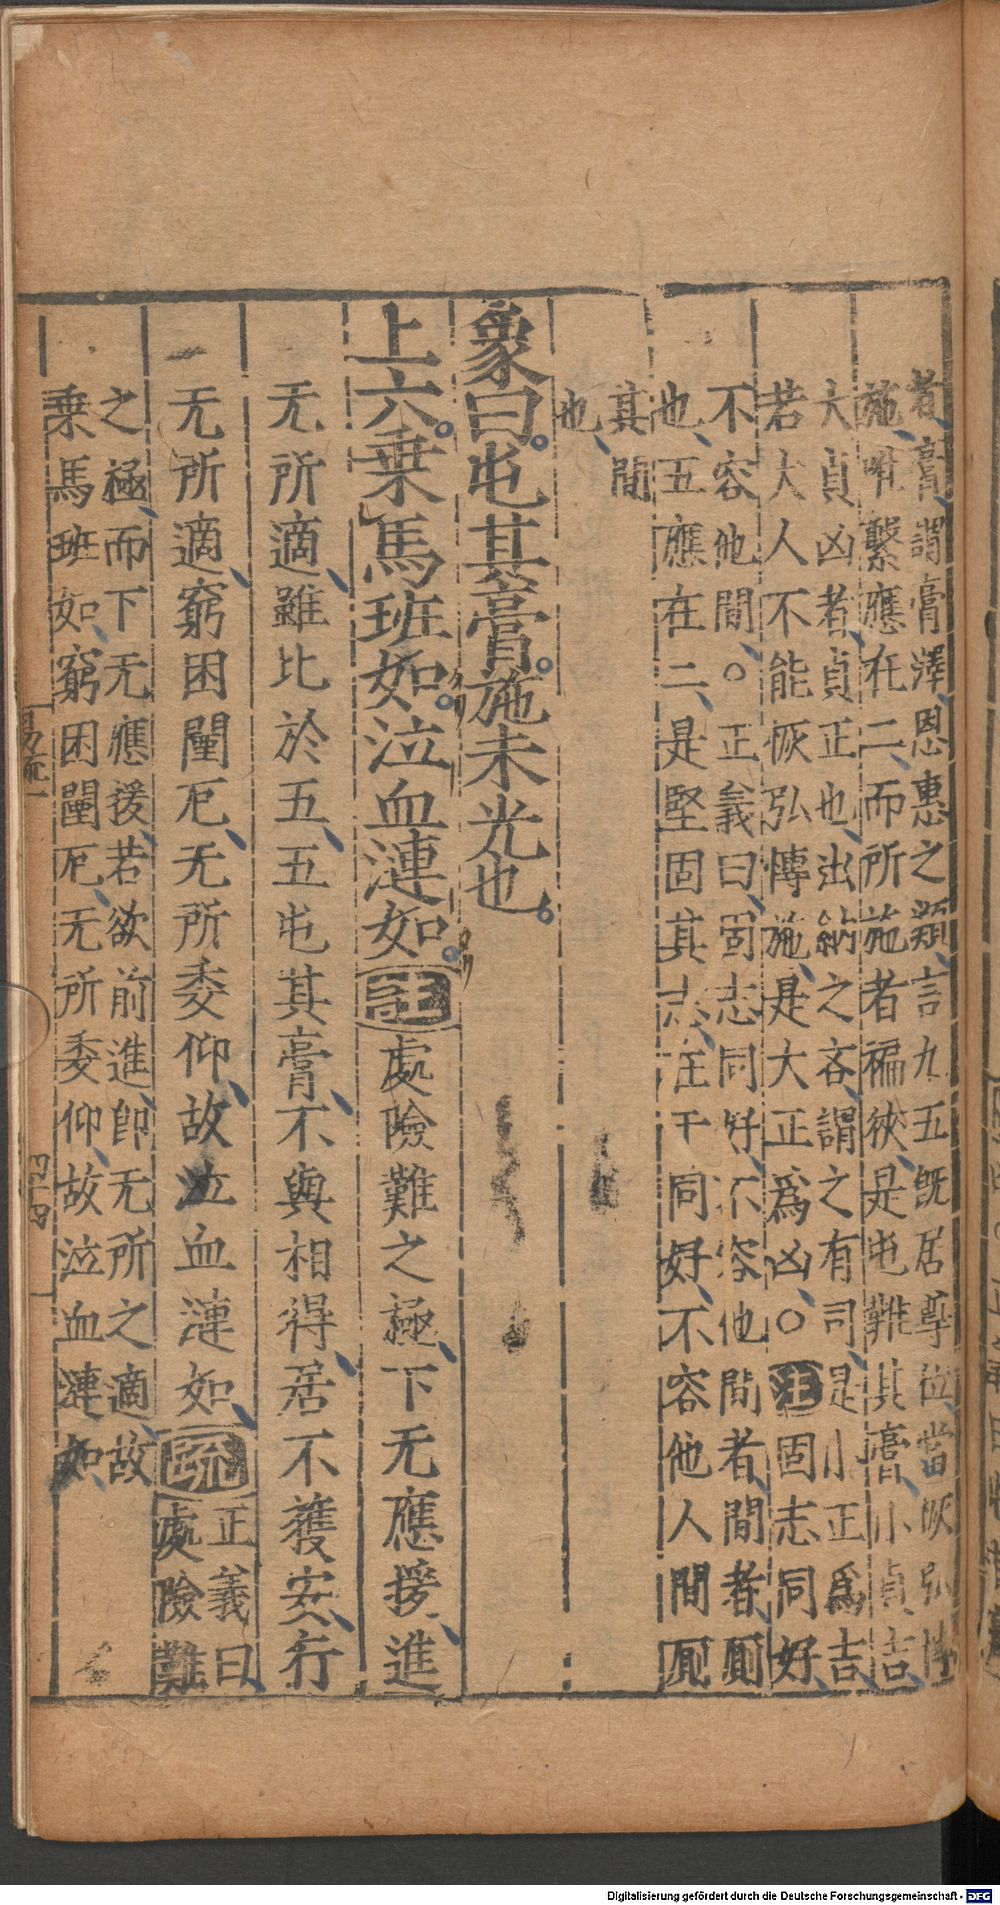 者膏謂膏澤恩惠之類言九五旣居尊位當恢弘博
施唯繫應在二而所施者褊狹是屯難其膏小貞吉
大貞凶者貞正也出納之吝謂之有司是小正爲吉
若大人不能恢弘博施是大正爲凶○注固志同好
不容他間○正義曰固志同好不容他間者間者厠
也五應在二是堅固其志在于同好不容他人間厠
其間
也
象曰屯其膏施未光也
上六乘馬班如泣血漣如注處險難之極下无應援進
无所適雖比於五五屯其膏不與相得居不獲安行
无所適窮困闉厄无所委仰故泣血漣如疏正義曰
處險難
之極而下无應援若欲前進卽无所之適故
乘馬班如窮困闉厄无所委仰故泣血漣如
易疏一
四十四
Digitalisierung gefördert durch die Deutsche Forschungsgemeinschaft - DFG